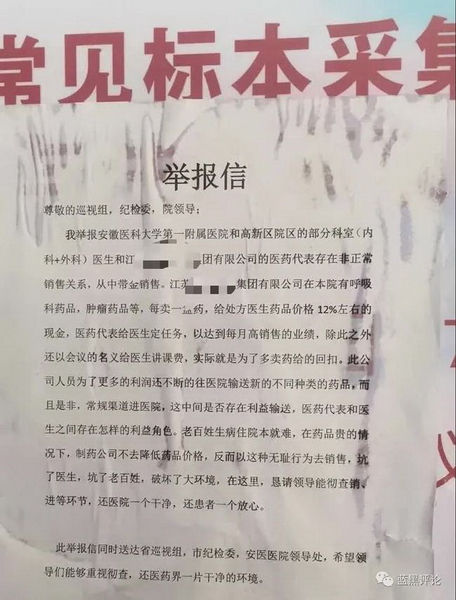 常见标本采集
举报信
尊敬的巡视组，纪检委，院领导；
我举报安徽医科大学第一附属医院和高新区院区的部分科室（内
科+外科）医生和江 团有限公司的医药代表存在非正常
销售关系，从中带金销售。江苏 集团有限公司在本院有呼吸
科药品，肿瘤药品等，每卖一 药，给处方医生药品价格 12%左右的
现金，医药代表给医生定任务，以达到每月高销售的业绩，除此之外
还以会议的名义给医生讲课费，实际就是为了多卖药给的回扣。此公
司人员为了更多的利润还不断的往医院输送新的不同种类的药品，而
且是非，常规渠道进医院，这中间是否存在利益输送，医药代表和医
生之间存在怎样的利益角色。老百姓生病住院本就难，在药品贵的情
况下，制药公司不去降低药品价格，反而以这种无耻行为去销售，坑
了医生，坑了老百姓，破坏了大环境，在这里，恳请领导能彻查销、
进等环节，还医院一个干净，还患者一个放心。
此举报信同时送达省巡视组，市纪检委，安医医院领导处，希望领
导们能够重视彻查，还医药界一片干净的环境。
蓝黑评论